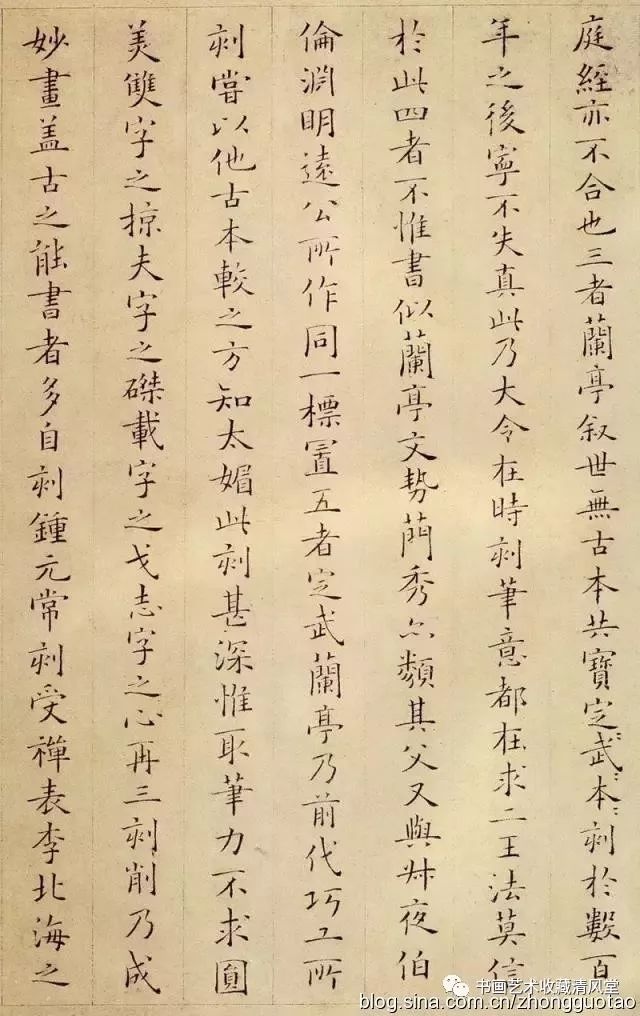 庭經亦不合也三者蘭亭叙世無古本共寶定武本刻於數百
年之後寧不失真此乃大令在時刻筆意都在求二王法莫信
於此四者不惟書似蘭亭文勢蕳秀亦類其父又與叔夜伯
倫淵明遠公所作同一標置五者定武蘭亭乃前代巧工所
刻嘗以他古本較之方知太媚此刻甚深惟取筆力不求圓
美雙字之掠夫字之磔載字之戈志字之心再三刻削乃成
妙畫盖古之能書者多自刻鍾元常刻受禪表李北海之
书画艺术收藏清风堂
blog.sina.com.cn/zhongguotao